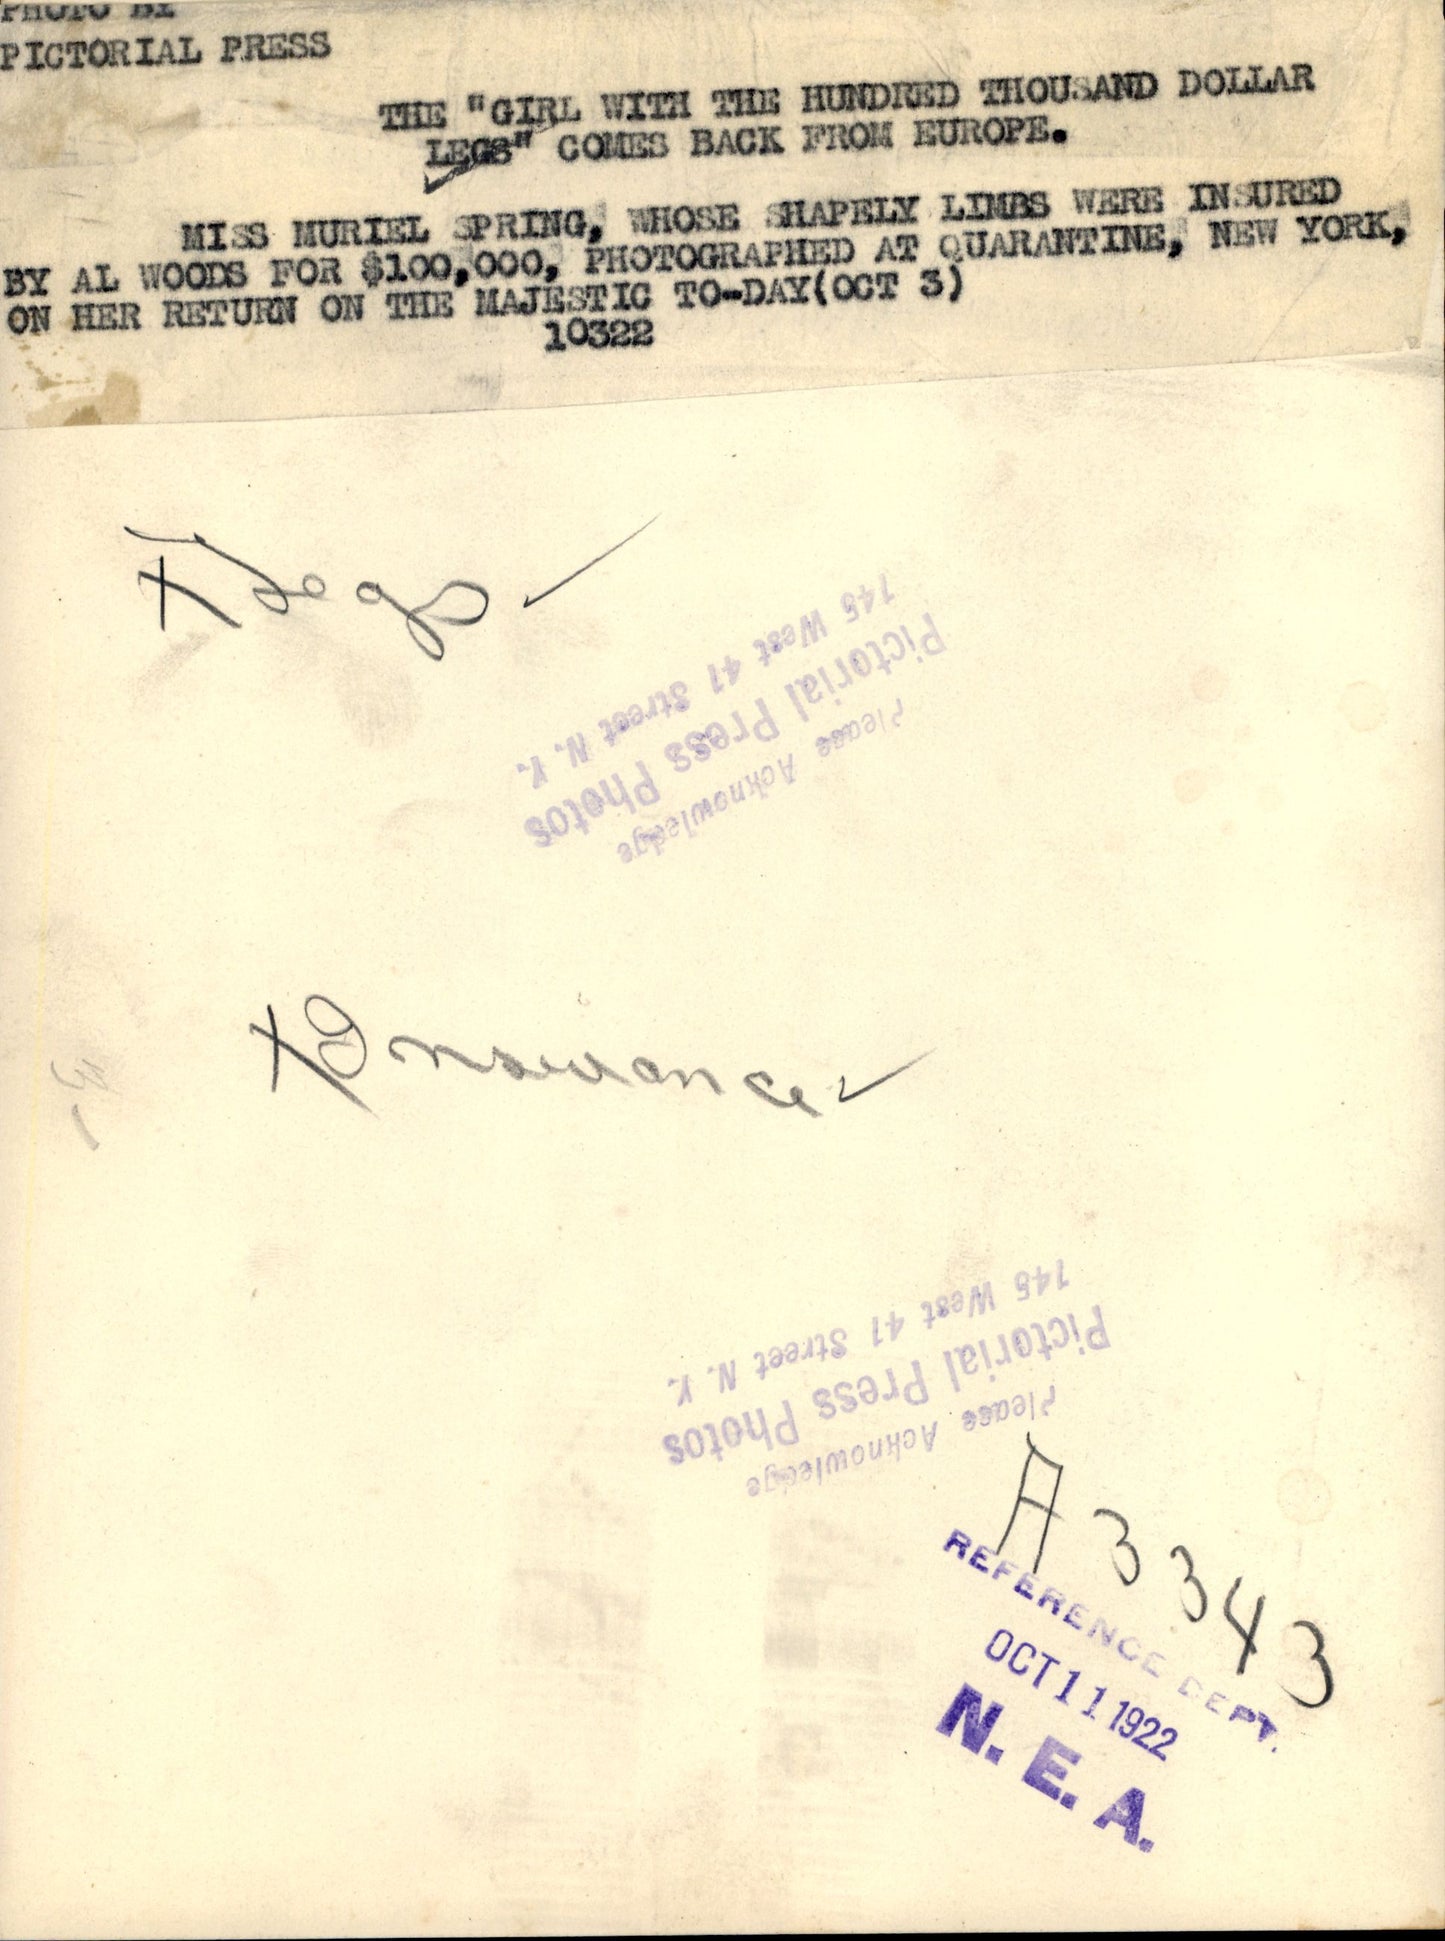 PHOTO BY
PICTORIAL PRESS
THE "GIRL WITH THE HUNDRED THOUSAND DOLLAR
LEGS" COMES BACK FROM EUROPE.
MISS MURIEL SPRING, WHOSE SHAPELY LIMBS WERE INSURED
BY AL WOODS FOR $100,000, PHOTOGRAPHED AT QUARANTINE, NEW YORK,
ON HER RETURN ON THE MAJESTIC TO-DAY(OCT 3)
10322
X Legs ✓
Please Acknowledge
Pictorial Press Photos
145 West 41 Street N. Y.
X Insurance ✓
Please Acknowledge
Pictorial Press Photos
145 West 41 Street N. Y.
A3343
REFERENCE DEPT.
OCT 11 1922
N. E. A.